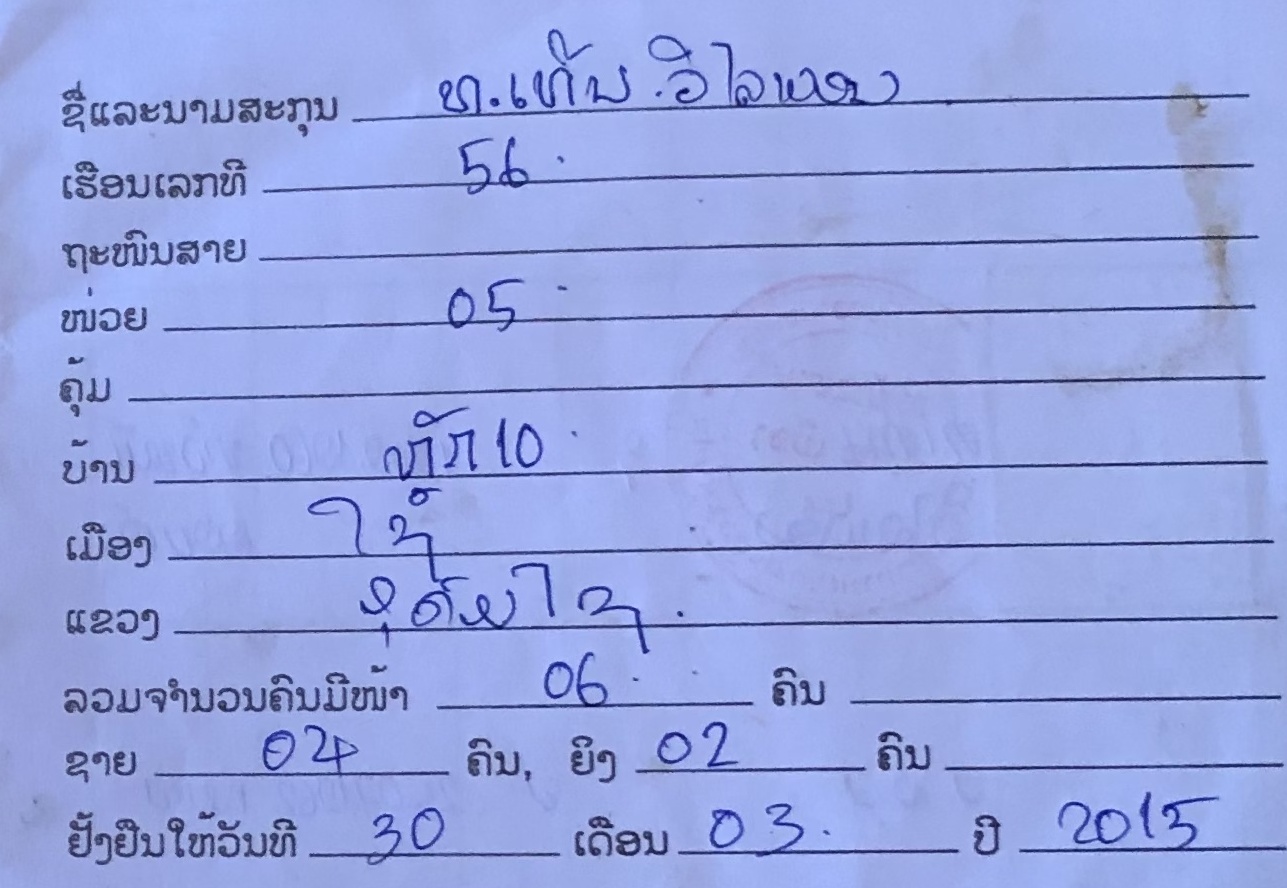 ຊື່ແລະນາມສະກຸນ ທ.ເທີບ ວິໄລ
ເຮືອນເລກທີ 56
ຖະໜົນສາຍ
ໜ່ວຍ 05
ຄຸ້ມ
ບ້ານ ຫຼັກ 10
ເມືອງ ໄຊ
ແຂວງ ອຸດົມໄຊ
ລວມຈຳນວນຄົນມີໜ້າ 06 ຄົນ
ຊາຍ 04 ຄົນ, ຍິງ 02 ຄົນ
ຢັ້ງຢືນໃຫ້ວັນທີ 30 ເດືອນ 03 ປີ 2015